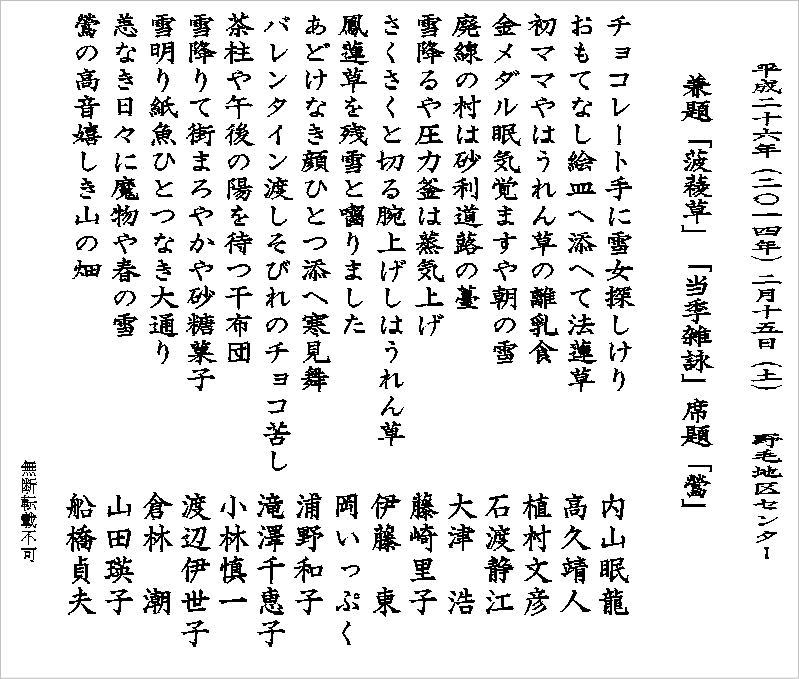 平成二十六年（二〇一四年）二月十五日（土）　野毛地区センター
兼題「菠薐草」「当季雑詠」席題「鶯」
チョコレート手に雪女探しけり　内山眠龍
おもてなし絵皿へ添へて法蓮草　高久靖人
初ママやはうれん草の離乳食　植村文彦
金メダル眠気覚ますや朝の雪　石渡静江
廃線の村は砂利道蕗の薹　大津　浩
雪降るや圧力釜は蒸気上げ　藤崎里子
さくさくと切る腕上げしはうれん草　伊藤　東
鳳蓮草を残雪と囓りました　岡いっぷく
あどけなき顔ひとつ添へ寒見舞　浦野和子
バレンタイン渡しそびれのチョコ苦し　滝澤千恵子
茶柱や午後の陽を待つ干布団　小林慎一
雪降りて街まろやかや砂糖菓子　渡辺伊世子
雪明り紙魚ひとつなき大通り　倉林　潮
恙なき日々に魔物や春の雪　山田瑛子
鶯の高音嬉しき山の畑　船橋貞夫
無断転載不可